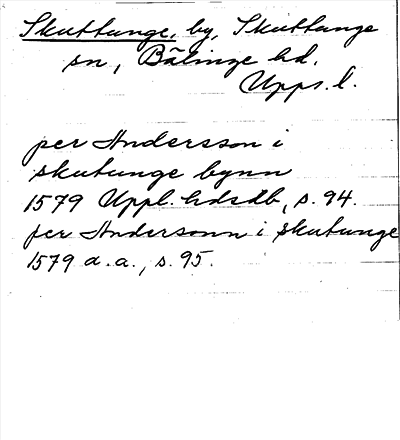 Skuttunge, by, Skuttunge
sn, Bälinge hd.
Upps. l.
per Andersson i
skutunge bynn
1579 Uppl. hdsdb, s. 94.
per Andersonn i skutunge
1579 a. a., s. 95.